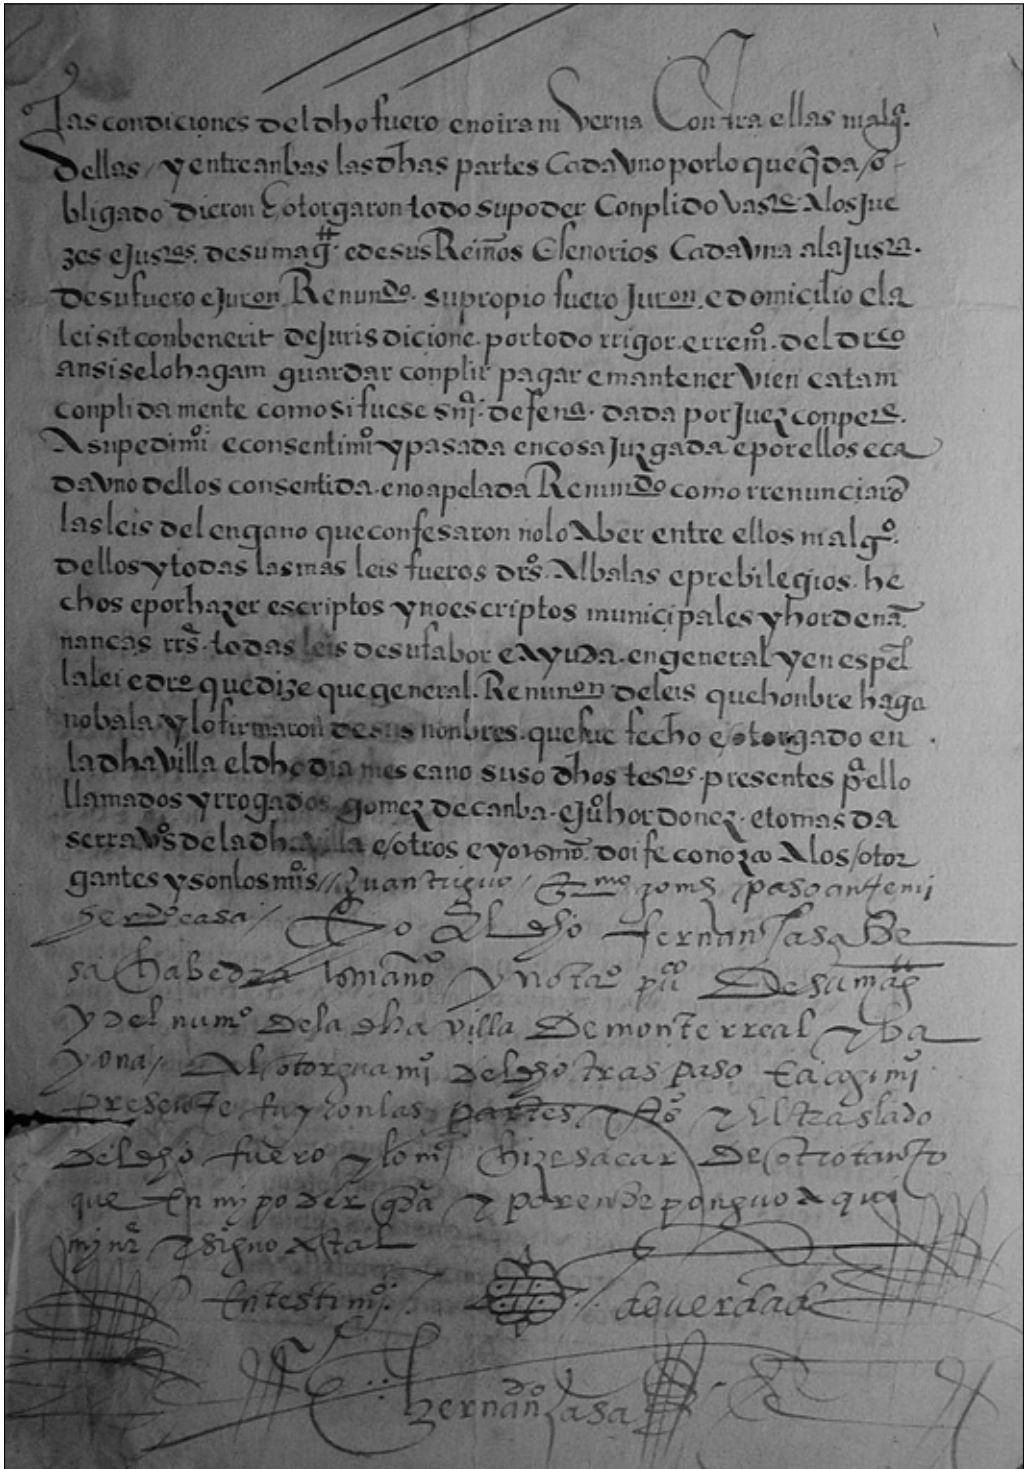 las condiciones del dho fuero e no ira ni verna Contra ellas ni alg.ª
dellas / y entre anbas las dhas partes Cada vno por lo que q̃da / o
bligado dieron E otorgaron todo su poder Conplido vas.te A los Jue
zes e Jus.as de su mag.t e de sus Reinos E señorios Cada vna a la Jus.a
de su fuero e Jur.on Renun.do su propio fuero Jur.on e domicilio e la
lei sit conbenerit de Jurisdicione por todo rrigor e rrem.o del dr.co
ansi se lo hagam guardar conplir pagar e mantener vien e atam
conplida mente como si fuese sn.ª defen.a dada por Juez conpe.te
A su pedimi.o e consentimi.o y pasada en cosa Juzgada e por ellos e ca
da vno dellos consentida e no apelada Renun.do como rrenunciarõ
las leis del engano que confesaron nolo Aber entre ellos ni alg.o
dellos y todas las mas leis fueros dr.os Albalas e prebilegios he
chos e por hazer escriptos y no escriptos municipales y hordenã
nancas rr.ª todas leis de su fabor e Ayuda en general y en esp.el
la lei e dr.o que dize que general Renun.on de leis que honbre haga
no bala y lo firmaron de sus nonbres que fue fecho e otorgado en
la dha villa el dho dia mes e ano suso dhos tes.os presentes p.ª ello
llamados y rrogados gomez de canba e Ju.o hordonez e tomas da
serra v.os de la dha villa e / otros e yo ssno doi fe conozco A los / otor
gantes y son los mis.os // Juan triguo / G.mo gomz paso ante mi
Her.do casa / Yo El dho fernan Casa De
sa Habedra ss.no y nota.o pu.co De su mag
y del num.o De la dha villa De monte rreal y ba
yona / Al otorguami.o Del dho traspaso
presente fuy con las partes y t.os y El traslado
Del dho fuero hize sacar De otro tanto
que En mi poder q̃da y por ende ponguo A qui
mi n.e y signo A tal
En testim.o de verdad
Hernan.do casa